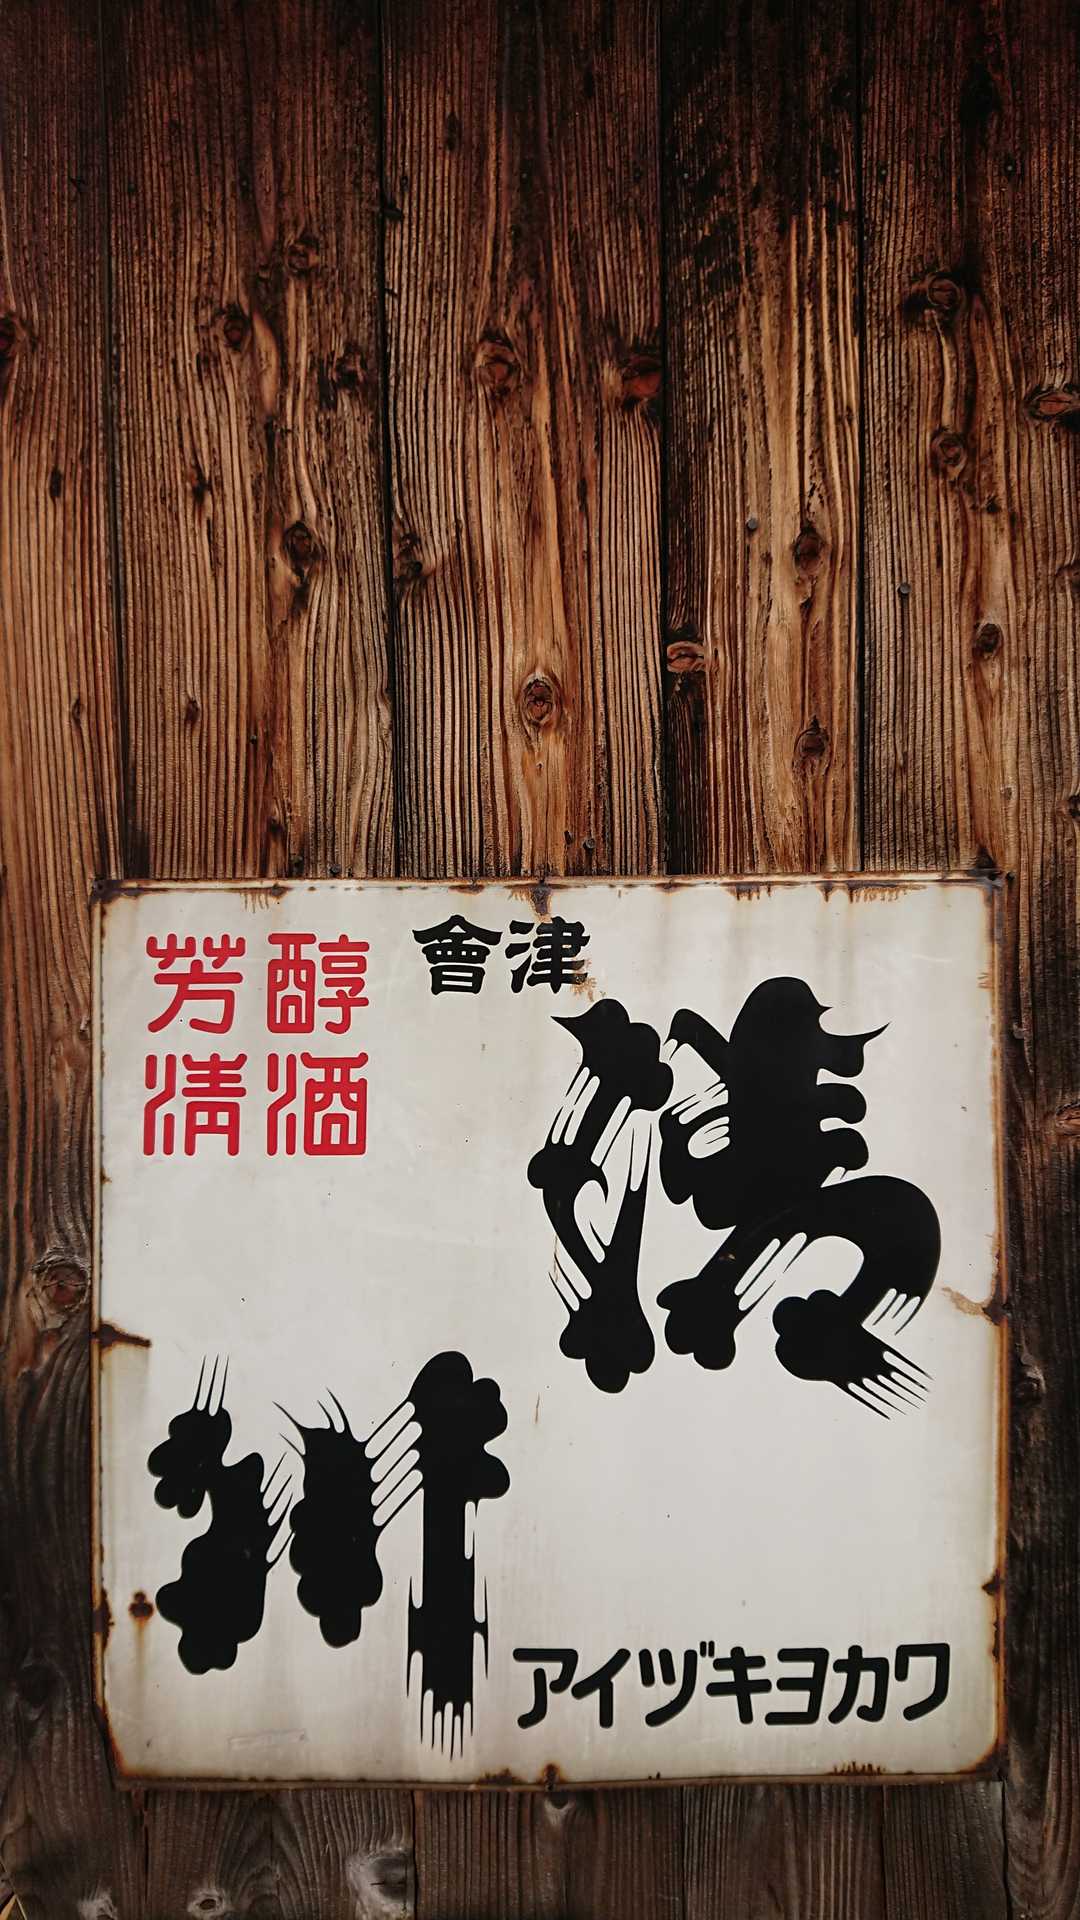 芳醇
清酒
會津
清川
アイヅキヨカワ